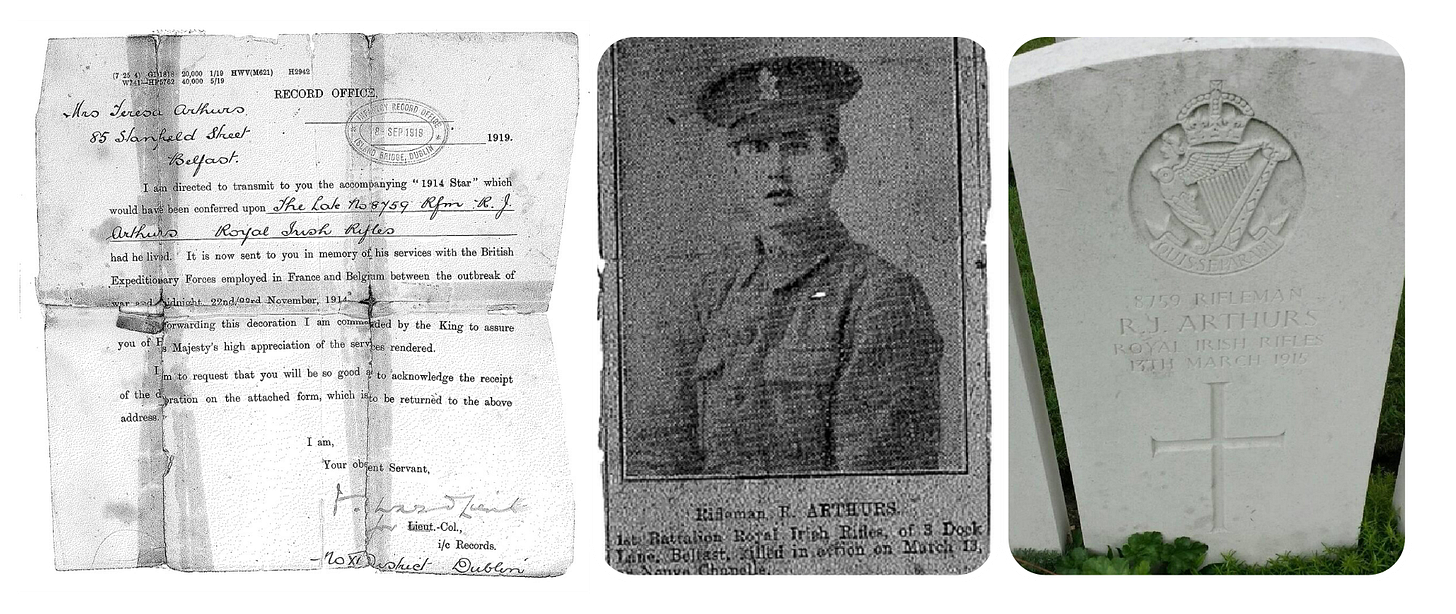 (7 25 4) 20,000 1/19 HWV(M621) H2942
40,000 5/19
RECORD OFFICE,
Mrs Teresa Arthurs
85 Stanfield Street
Belfast.
INFANTRY RECORD OFFICE
SEP 1919
ISLAND BRIDGE, DUBLIN
1919.
I am directed to transmit to you the accompanying "1914 Star" which
would have been conferred upon The Late No 8759 Rfm R. J.
Arthurs Royal Irish Rifles
had he lived. It is now sent to you in memory of his services with the British
Expeditionary Forces employed in France and Belgium between the outbreak of
war and midnight 22nd/23rd November, 1914
forwarding this decoration I am commanded by the King to assure
you of His Majesty's high appreciation of the services rendered.
I am to request that you will be so good as to acknowledge the receipt
of the decoration on the attached form, which is to be returned to the above
address.
I am,
Your obedient Servant,
for Lieut.-Col.,
i/c Records.
No XI District Dublin
Rifleman R. ARTHURS.
1st Battalion Royal Irish Rifles, of 3 Dock
Lane, Belfast, killed in action on March 13,
QUIS SEPARABIT
8759 RIFLEMAN
R.J. ARTHURS
ROYAL IRISH RIFLES
MARCH 1915